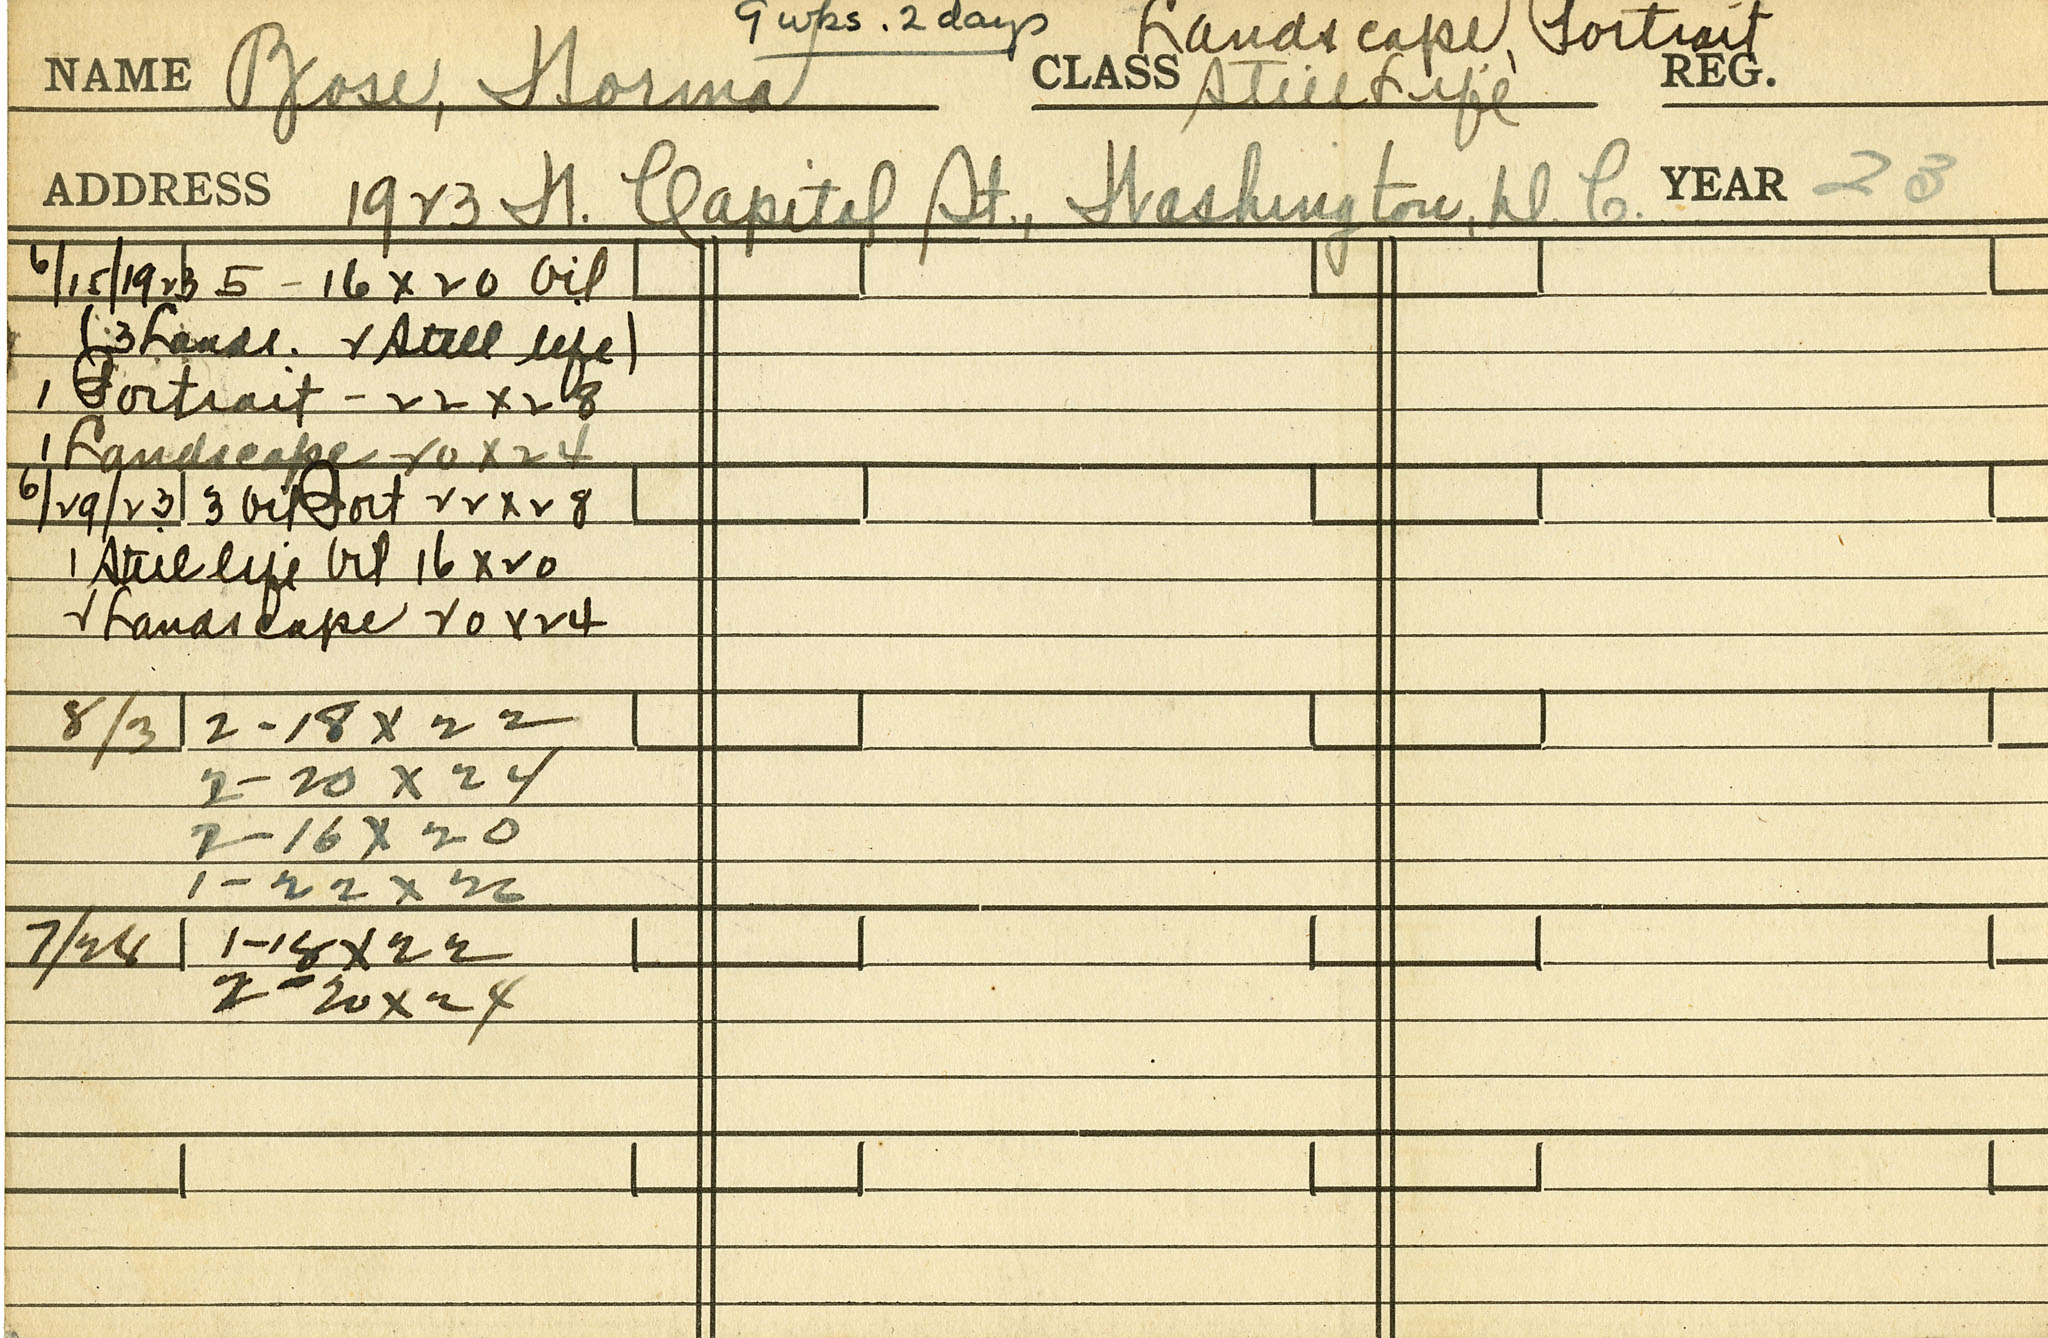 9 wks. 2 days
Landscape, Portrait
NAME Bose, Norma CLASS Still Life REG.
ADDRESS 1923 N. Capitol St., Washington, D. C. YEAR 23
6/15/1923 5 - 16 x 20 Oil
(3 Lands. 2 Still life)
1 Portrait - 22 x 28
1 Landscape - 20 x 24
6/29/23 3 Oil Port 22 x 28
1 Still life Oil 16 x 20
2 Landscape 20 x 24
8/3 2 - 18 x 22
2 - 20 x 24
2 - 16 x 20
1 - 22 x 26
7/28 1 - 18 x 22
2 - 20 x 24